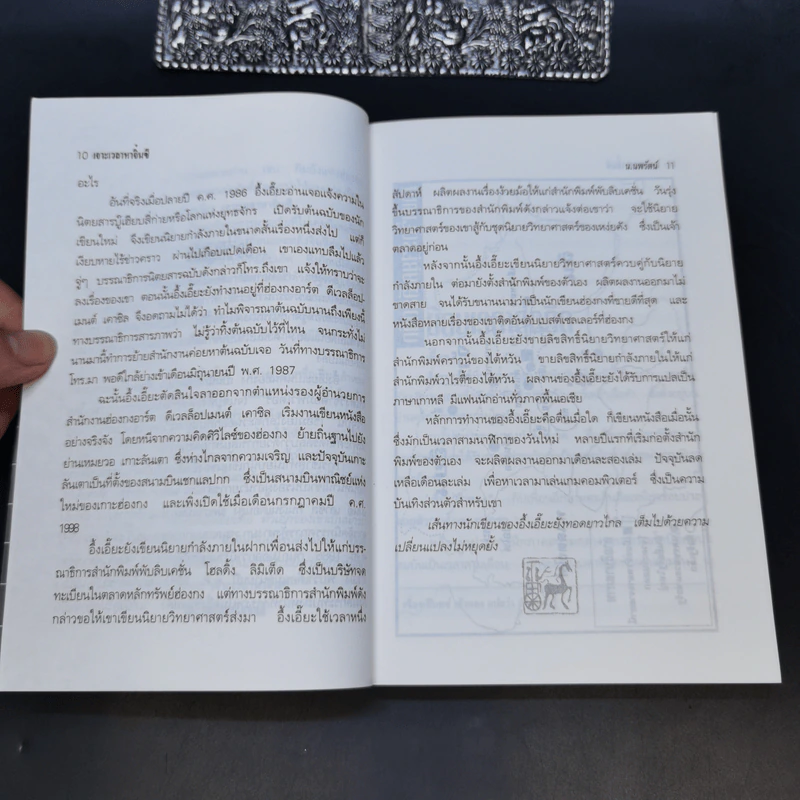 10 เจาะเวลาหาจิ๋นซี
อะไร
อันที่จริงเมื่อปลายปี ค.ศ. 1986 อึ้งเอี๊ยะอ่านเจอแจ้งความใน
นิตยสารบู๊เฮียบสี่ก่ายหรือโลกแห่งยุทธจักร เปิดรับต้นฉบับของนัก
เขียนใหม่ จึงเขียนนิยายกำลังภายในขนาดสั้นเรื่องหนึ่งส่งไป แต่ก็
เงียบหายไร้ข่าวคราว ผ่านไปเกือบแปดเดือน เขาเองแทบลืมไปแล้ว
จู่ๆ บรรณาธิการนิตยสารฉบับดังกล่าวก็โทร.ถึงเขา แจ้งให้ทราบว่าจะ
ลงเรื่องของเขา ตอนนั้นอึ้งเอี๊ยะยังทำงานอยู่ที่ฮ่องกงอาร์ต ดีเวลล็อป-
เมนต์ เคาซิล จึงอดถามไม่ได้ว่า ทำไมพิจารณาต้นฉบับนานถึงเพียงนี้
ทางบรรณาธิการสารภาพว่า ไม่รู้ว่าทิ้งต้นฉบับไว้ที่ไหน จนกระทั่งไม่
นานมานี้ทำการย้ายสำนักงานค่อยหาต้นฉบับเจอ วันที่ทางบรรณาธิการ
โทร.มา พอดีใกล้ย่างเข้าเดือนมิถุนายนปี พ.ศ. 1987
ฉะนั้นอึ้งเอี๊ยะตัดสินใจลาออกจากตำแหน่งรองผู้อำนวยการ
สำนักงานฮ่องกงอาร์ต ดีเวลล็อปเมนต์ เคาซิล เริ่มงานเขียนหนังสือ
อย่างจริงจัง โดยหนีจากความศิวิไลซ์ของฮ่องกง ย้ายถิ่นฐานไปยัง
ย่านเหมยวอ เกาะลันเตา ซึ่งห่างไกลจากความเจริญ และปัจจุบันเกาะ
ลันเตาเป็นที่ตั้งของสนามบินเชกแลปกก ซึ่งเป็นสนามบินพาณิชย์แห่ง
ใหม่ของเกาะฮ่องกง และเพิ่งเปิดใช้เมื่อเดือนกรกฎาคมปี ค.ศ.
1998
อึ้งเอี๊ยะยังเขียนนิยายกำลังภายในฝากเพื่อนส่งไปให้แก่บรร-
ณาธิการสำนักพิมพ์พับลิบเคชั่น โฮลดิ้ง ลิมิเต็ด ซึ่งเป็นบริษัทจด
ทะเบียนในตลาดหลักทรัพย์ฮ่องกง แต่ทางบรรณาธิการสำนักพิมพ์ดัง
กล่าวขอให้เขาเขียนนิยายวิทยาศาสตร์ส่งมา อึ้งเอี๊ยะใช้เวลาหนึ่ง
น.นพรัตน์ 11
สัปดาห์ ผลิตผลงานเรื่องง้วยม้อให้แก่สำนักพิมพ์พับลิบเคชั่น วันรุ่ง
ขึ้นบรรณาธิการของสำนักพิมพ์ดังกล่าวแจ้งต่อเขาว่า จะใช้นิยาย
วิทยาศาสตร์ของเขาสู้กับชุดนิยายวิทยาศาสตร์ของเหน่ยคัง ซึ่งเป็นเจ้า
ตลาดอยู่ก่อน
หลังจากนั้นอึ้งเอี๊ยะเขียนนิยายวิทยาศาสตร์ควบคู่กับนิยาย
กำลังภายใน ต่อมายังตั้งสำนักพิมพ์ของตัวเอง ผลิตผลงานออกมาไม่
ขาดสาย จนได้รับขนานนามว่าเป็นนักเขียนฮ่องกงที่ขายดีที่สุด และ
หนังสือหลายเรื่องของเขาติดอันดับเบสต์เซลเลอร์ที่ฮ่องกง
นอกจากนั้นอึ้งเอี๊ยะยังขายลิขสิทธิ์นิยายวิทยาศาสตร์ให้แก่
สำนักพิมพ์คราวน์ของไต้หวัน ขายลิขสิทธิ์นิยายกำลังภายในให้แก่
สำนักพิมพ์วาไรตี้ของไต้หวัน ผลงานของอึ้งเอี๊ยะยังได้รับการแปลเป็น
ภาษาเกาหลี มีแฟนนักอ่านทั่วภาคพื้นเอเซีย
หลักการทำงานของอึ้งเอี๊ยะคือตื่นเมื่อใด ก็เขียนหนังสือเมื่อนั้น
ซึ่งมักเป็นเวลาสามนาฬิกาของวันใหม่ หลายปีแรกที่เริ่มก่อตั้งสำนัก
พิมพ์ของตัวเอง จะผลิตผลงานออกมาเดือนละสองเล่ม ปัจจุบันลด
เหลือเดือนละเล่ม เพื่อหาเวลามาเล่นเกมคอมพิวเตอร์ ซึ่งเป็นความ
บันเทิงส่วนตัวสำหรับเขา
เส้นทางนักเขียนของอึ้งเอี๊ยะยังทอดยาวไกล เต็มไปด้วยความ
เปลี่ยนแปลงไม่หยุดยั้ง